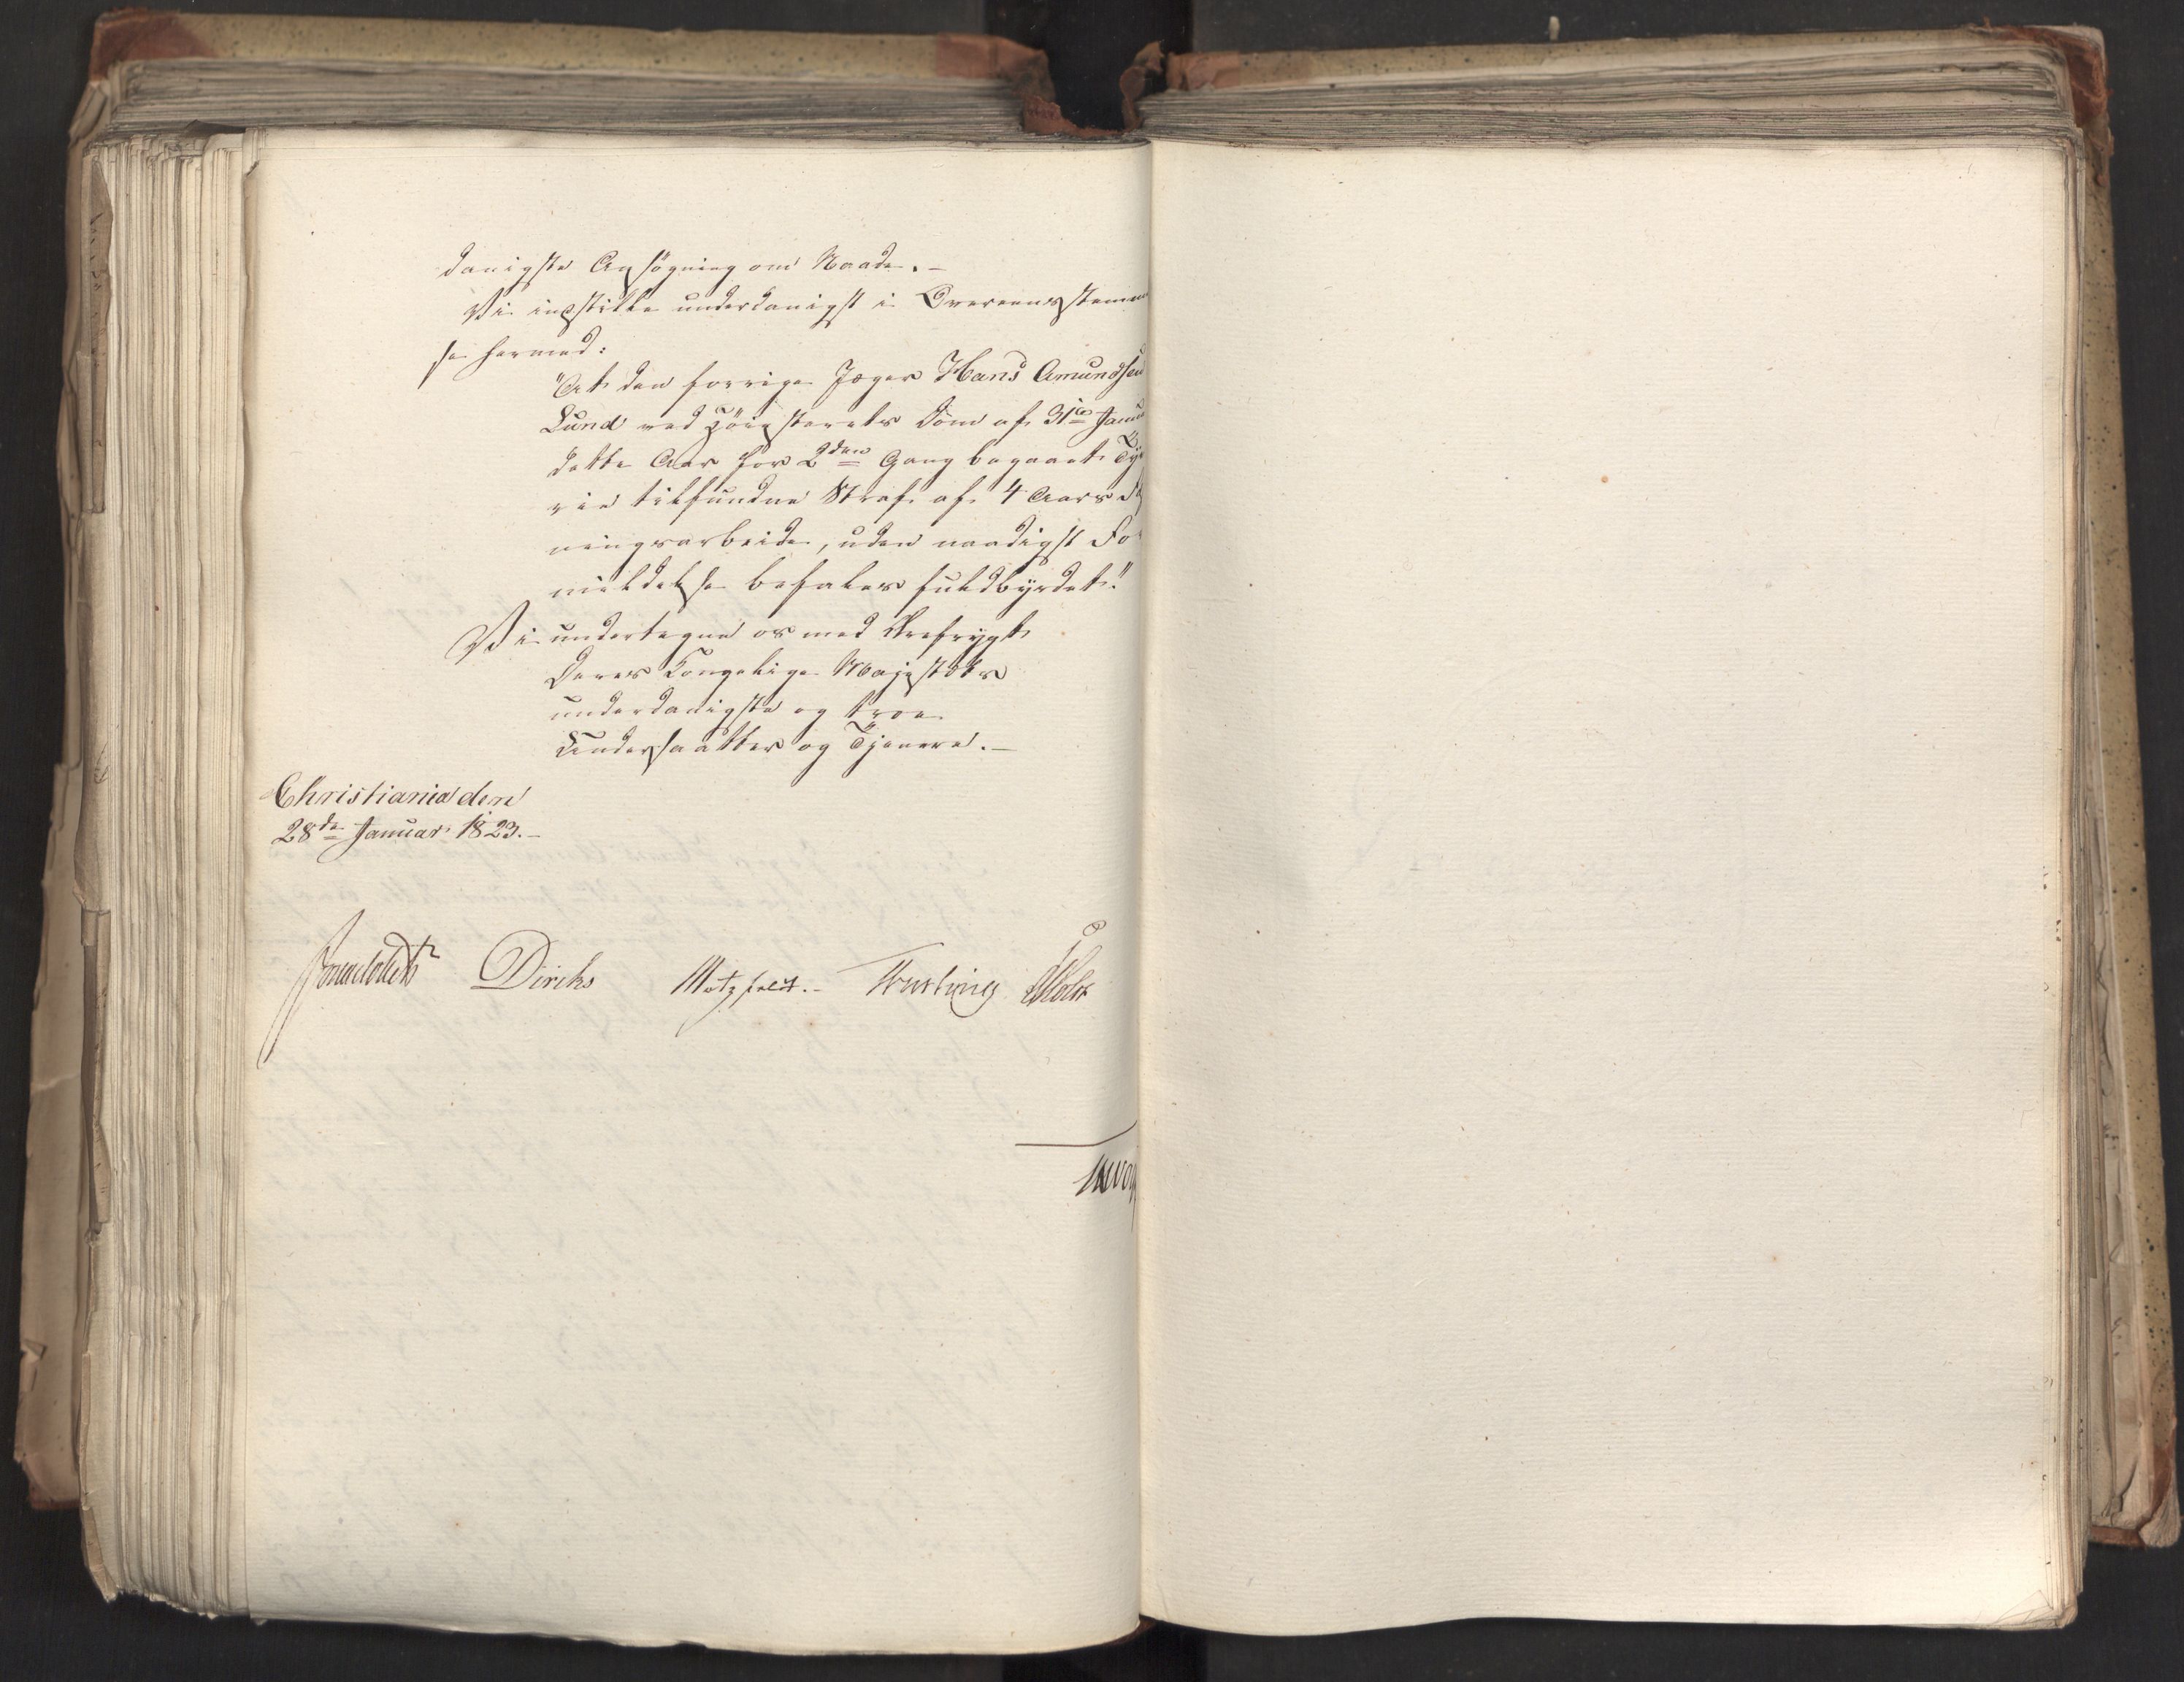 danigste Ansögning om Naade. –
Vi indstille underdanigst i Overeensstemmel
se hermed:
"At den forrige Jæger Hans Amundsen
Lund ved Höiesterets Dom af 31te Janu
dette Aar for 2den Gang begaaet Ty
rie tilfundne Straf af 4 Aars
ningsarbeide, uden naadigst For
mildelse befales fuldbyrdet."
Vi undertegne os med Ærefrygt
Deres Kongelige Majestæts
underdanigste og troe
Undersaatter og Tjenere. –
Christiania den
28de Januar 1823. –
Sommerhielm Diriks Motzfeldt. – Treschow Holst